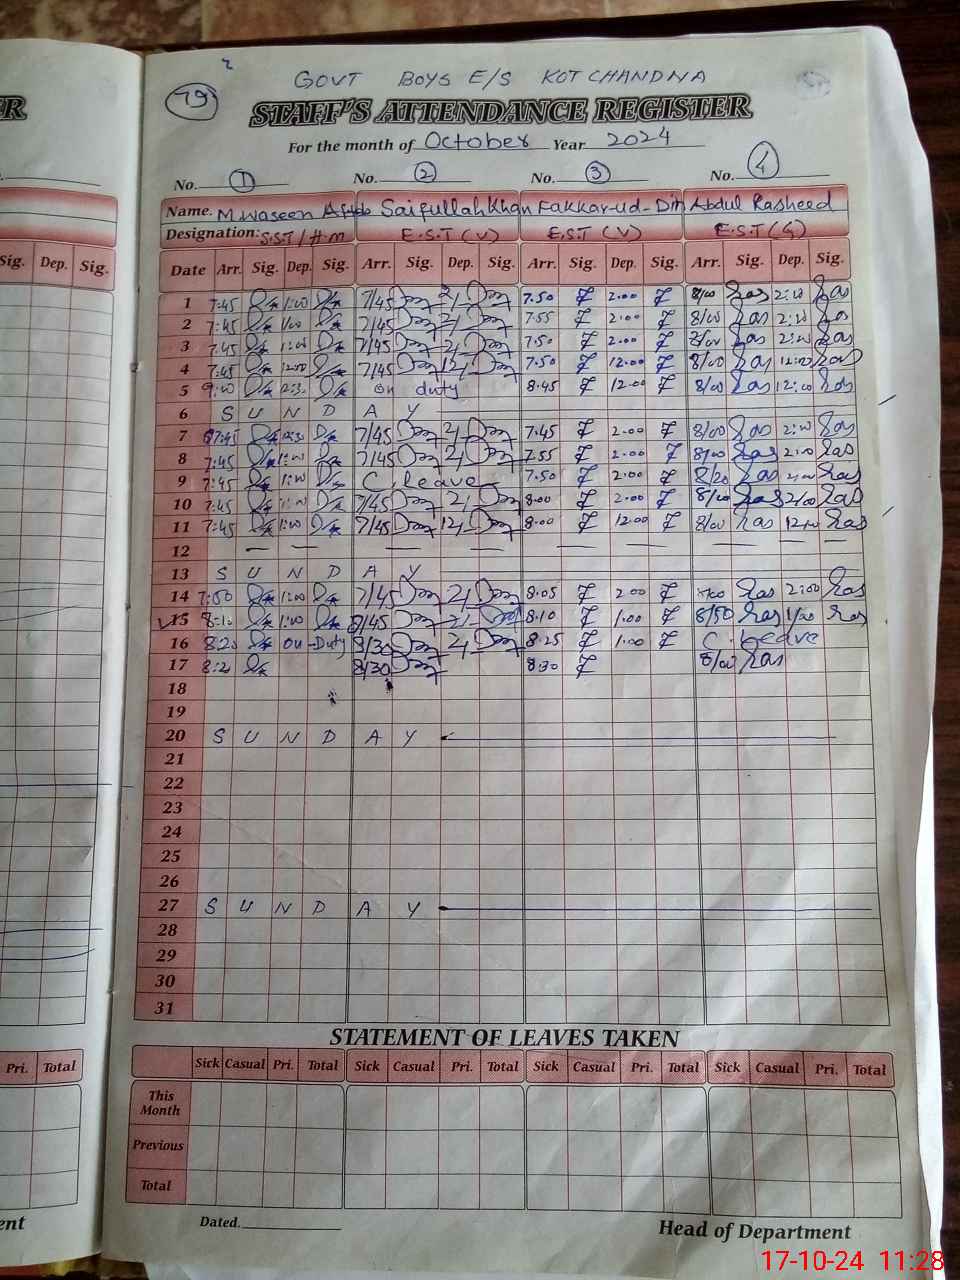 ER
79
GOVT BOYS E/S KOT CHANDNA
STAFF'S ATTENDANCE REGISTER
For the month of October Year 2024
No. 1 No. 2 No. 3 No. 4
Name. M Waseen Saifullah Khan Fakkar-ud-Din Abdul Rasheed
Designation: S.S.T/H.M E.S.T (V) E.S.T (V) E.S.T (G)
Sig. Dep. Sig. Date Arr. Sig. Dep. Sig. Arr. Sig. Dep. Sig. Arr. Sig. Dep. Sig. Arr. Sig. Dep. Sig.
1 7:45 1:00 7/45 2/ 7.50 2.00 8/00 2:00
2 7:45 1:00 7/45 2/ 7.55 2.00 8/00 2:00
3 7:45 1:00 7/45 2/ 7.50 2.00 8/00 2:00
4 7:45 12:00 7/45 12/ 7.50 12.00 8/00 12:00
5 9:00 on duty 8.45 12.00 8/00 12:00
6 S U N D A Y
7 7:45 7/45 2/ 7.45 2.00 8/00 2:00
8 7:45 1:00 7/45 2/ 7.55 2.00 8/00 2:00
9 7:45 1:00 C. leave 7.50 2.00 8/20 2:00
10 7:45 1:00 7/45 2/ 8.00 2.00 8/00 2/00
11 7:45 1:00 7/45 12/ 8.00 12.00 8/00 12:00
12 — — — — — — — —
13 S U N D A Y
14 7:50 1:00 7/45 2/ 8.05 2.00 2:00
15 8:10 1:00 8/45 2/ 8.10 1.00 8/50 1/00
16 8:20 on-Duty 8/30 2/ 8.25 1.00 C. Leave
17 8:20 8/30 8.30 8/00
18
19
20 S U N D A Y
21
22
23
24
25
26
27 S U N D A Y
28
29
30
31
STATEMENT OF LEAVES TAKEN
Pri. Total Sick Casual Pri. Total Sick Casual Pri. Total Sick Casual Pri. Total Sick Casual Pri. Total
This Month
Previous
Total
Dated.
ent Head of Department
17-10-24 11:28